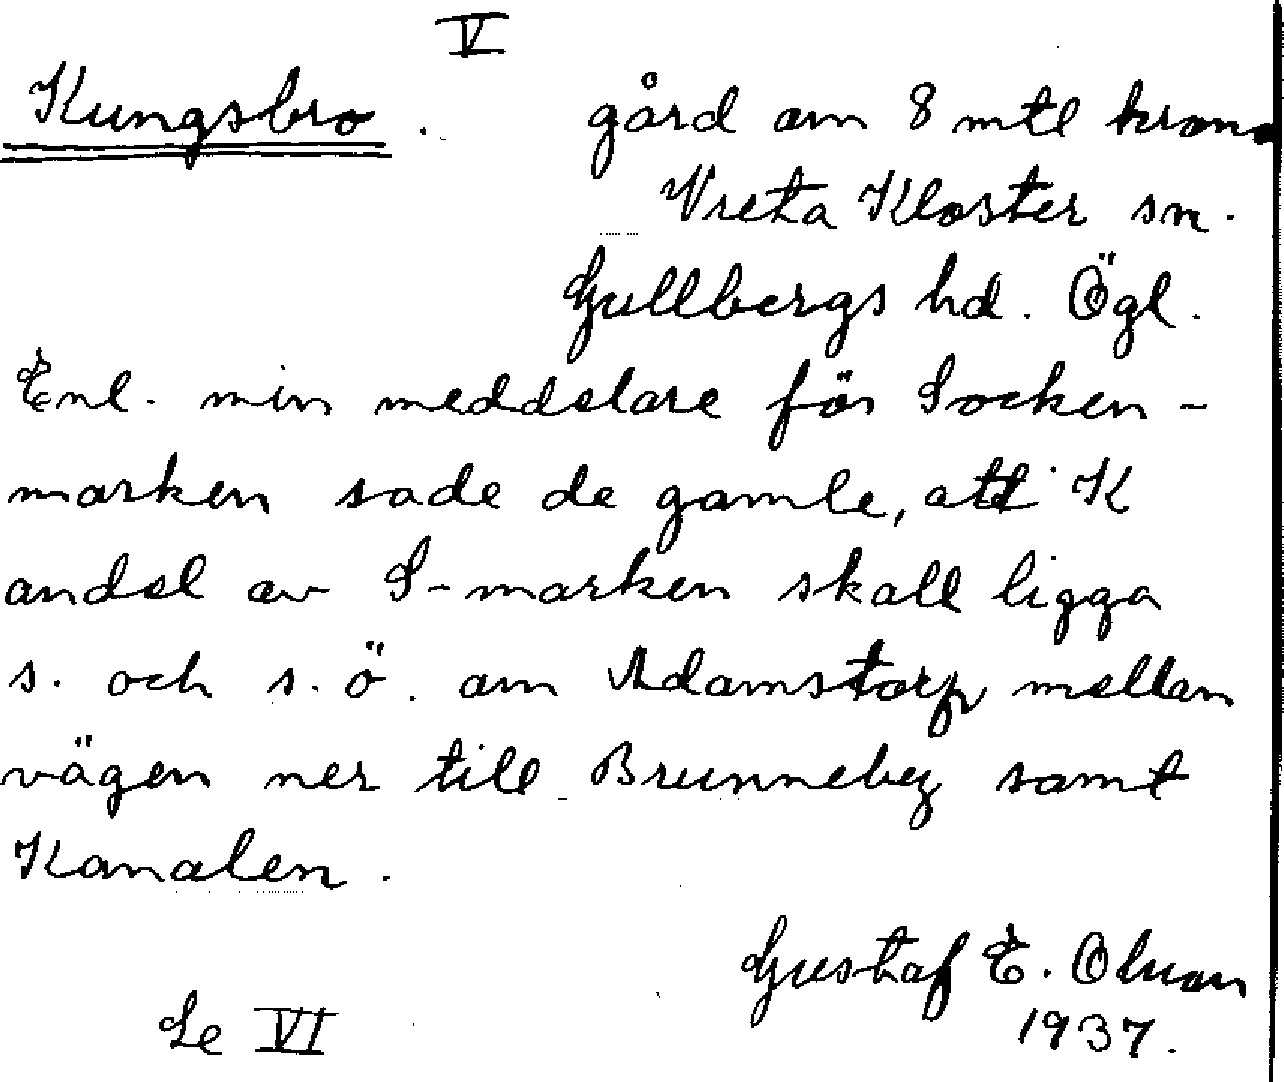 V
Kungsbro. gård om 8 mtl krono
Vreta Kloster sn.
Gullbergs hd. Ögl.
Enl. min meddelare för Socken-
marken sade de gamle, att K
andel av S-marken skall ligga
s. och s.ö. om Adamstorp mellan
vägen ner till Brunneby samt
Kanalen.
Gustaf E. Olsson
1937.
Se VI